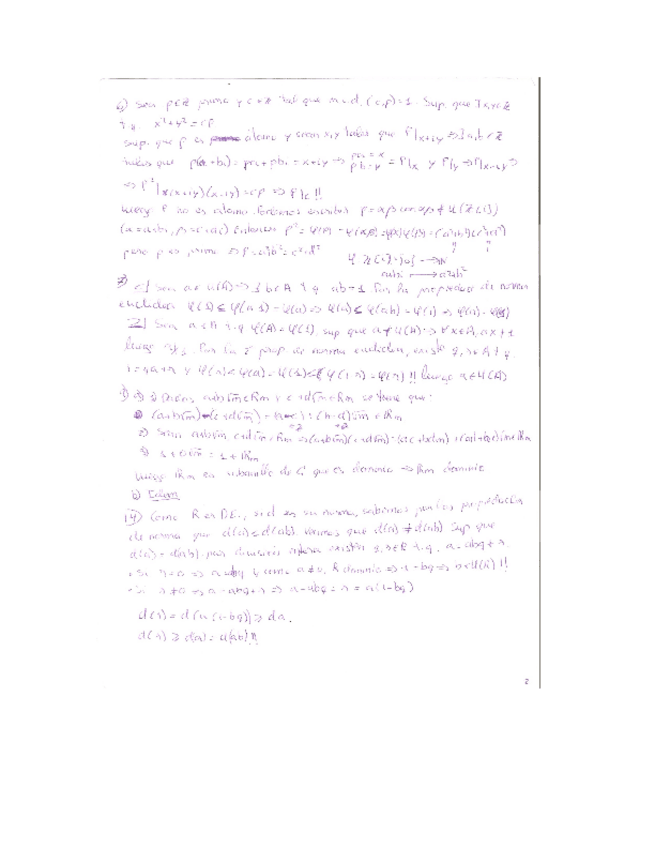 6) Sea p∈Z primo y c∈Z tal que m.c.d.(c,p)=1. Sup. que ∃x,y∈Z
t.q. x²+y²=cp
Sup. que p es átomo y sean x,y tales que p|x+iy ⇒ ∃a,b∈Z
tales que p(a+bi)=pa+pbi=x+iy ⇒ pa=x pb=y ⇒ p|x y p|y ⇒ p|x-iy ⇒
⇒ p²|(x+iy)(x-iy)=cp ⇒ p|c!!
luego p no es átomo. Podemos escribir p=αβ con α,β∉U(Z[i])
(α=a+bi, β=c+di) Entonces p²=φ(p)=φ(αβ)=φ(α)φ(β)=(a²+b²)(c²+d²)
pero p es primo ⇒ p=a²+b²=c²+d²
φ: Z[i]-{0} → N
a+bi ⟼ a²+b²
⊂] Sea a∈U(A) ⇒ ∃b∈A t.q. ab=1 Por la propiedad de norma
euclídea φ(1)≤φ(a·1)=φ(a) ⇒ φ(a)≤φ(ab)=φ(1) ⇒ φ(a)=φ(1)
⊃] Sea a∈A t.q. φ(a)=φ(1), sup que a∉U(A) ⇒ ∀x∈A, ax≠1
luego Por la 2ª prop de norma euclídea, existe q,r∈A t.q.
1=qa+r y φ(r)<φ(a)=φ(1)≤φ(1·r)=φ(r)!! luego a∈U(A)
a) Sean a+b√m∈Rm y c+d√m∈Rm se tiene que:
(a+b√m)-(c+d√m)=(a-c)+(b-d)√m∈Rm
2) Sean a+b√m, c+d√m∈Rm ⇒ (a+b√m)(c+d√m)=(ac+bdm)+(ad+bc)√m∈Rm
3) 1+0√m=1∈Rm
luego Rm es subanillo de C que es dominio ⇒ Rm dominio
b)
14) Como R es D.E., si d es su norma, sabemos por las propiedades
de norma que d(a)≤d(ab). Veamos que d(a)≠d(ab) Sup que
d(a)=d(ab), por división entera existen q,r∈R t.q. a=abq+r.
·Si r=0 ⇒ a=abq y como a≠0, R dominio ⇒ 1=bq ⇒ b∈U(R)!!
·Si r≠0 ⇒ a=abq+r ⇒ a-abq=r=a(1-bq)
d(r)=d(a(1-bq))≥da.
d(r)≥d(a)=d(ab)!!
2